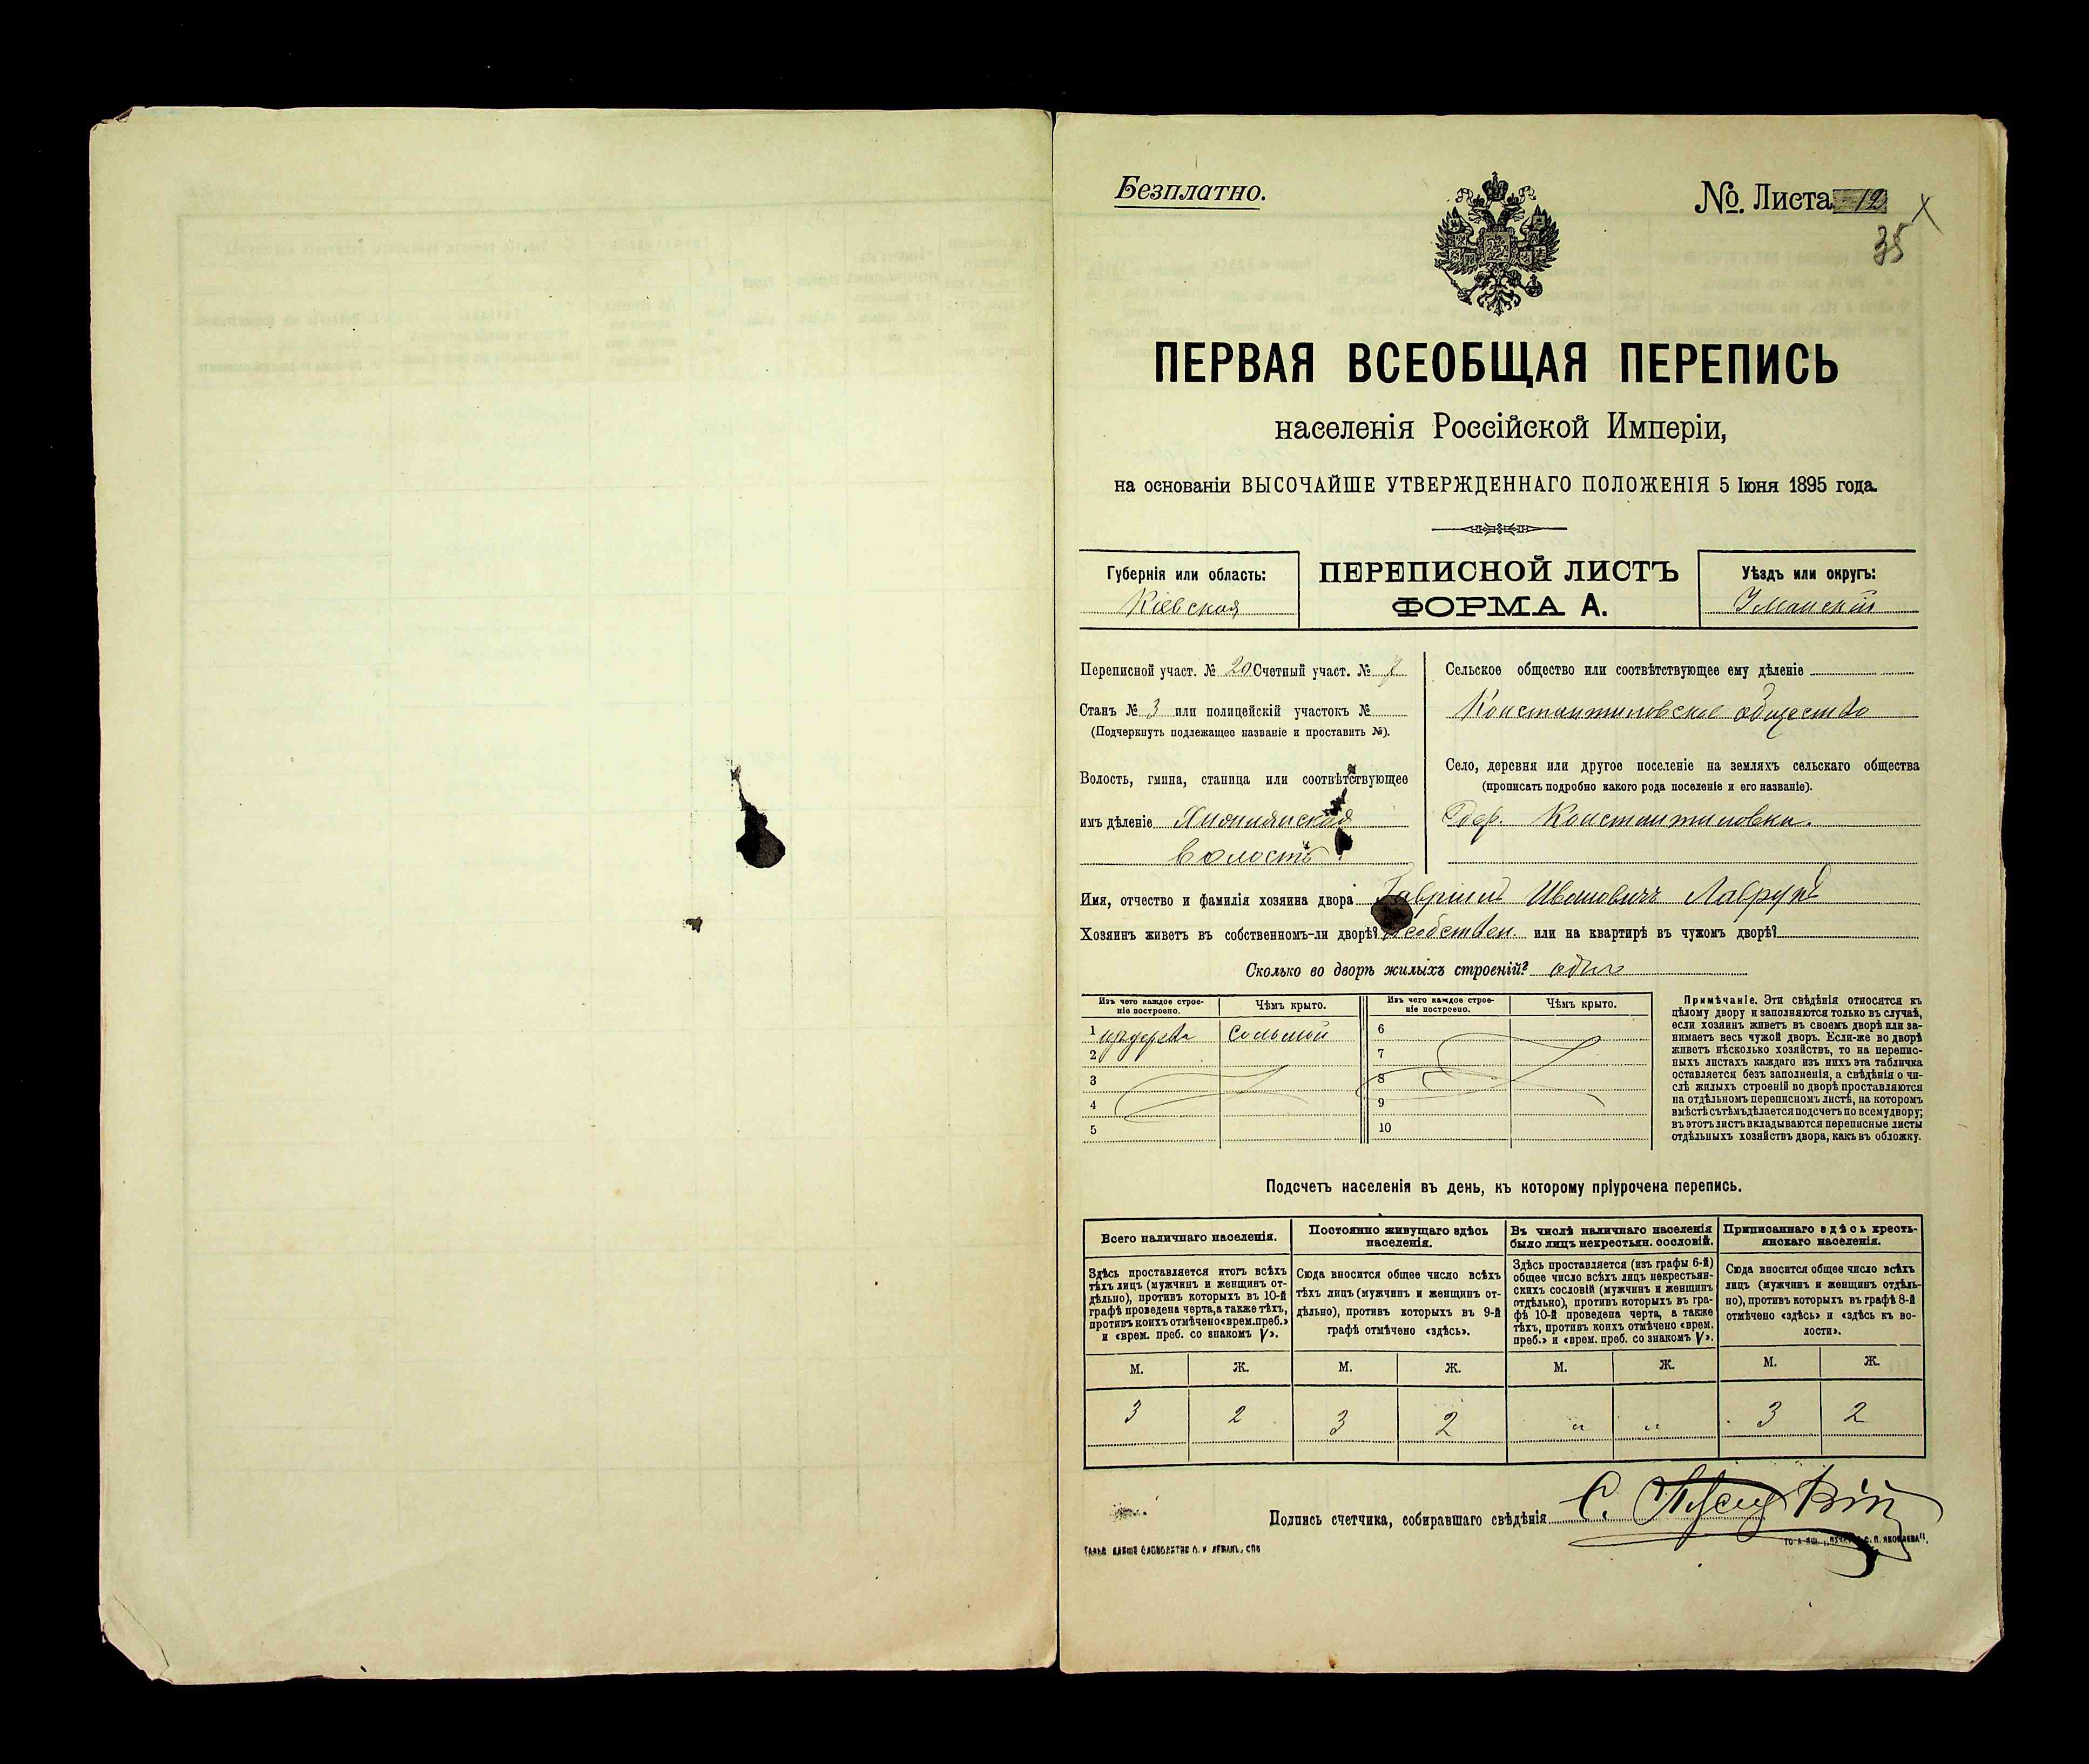 Безплатно.
№. Листа 12
35
ПЕРВАЯ ВСЕОБЩАЯ ПЕРЕПИСЬ
населенія Россійской Имперіи,
на основаніи ВЫСОЧАЙШЕ УТВЕРЖДЕННАГО ПОЛОЖЕНІЯ 5 Іюня 1895 года.
Губернія или область:
Кіевская
ПЕРЕПИСНОЙ ЛИСТЪ
ФОРМА А.
Уѣздъ или округъ:
Уманскій
Переписной участ. № 20 Счетный участ. № 7
Станъ № 3 или полицейскій участокъ №
(Подчеркнуть подлежащее названіе и проставить №).
Волость, гмина, станица или соотвѣтствующее
имъ дѣленіе
волость
Сельское общество или соотвѣтствующее ему дѣленіе
Константиновское общество
Село, деревня или другое поселеніе на земляхъ сельскаго общества
(прописать подробно какого рода поселеніе и его названіе).
Константиновка.
Имя, отчество и фамилія хозяина двора Гавріилъ Ивановичъ Лаврукъ
Хозяинъ живетъ въ собственномъ-ли дворѣ? собствен. или на квартирѣ въ чужомъ дворѣ?
Сколько во дворѣ жилыхъ строеній? одно
Изъ чего каждое строе-
ніе построено.
Чѣмъ крыто.
Изъ чего каждое строе-
ніе построено.
Чѣмъ крыто.
1 изъ дерева соломой
2
3
4
5
6
7
8
9
10
Примѣчаніе. Эти свѣдѣнія относятся къ
цѣлому двору и заполняются только въ случаѣ,
если хозяинъ живетъ въ своемъ дворѣ или за-
нимаетъ весь чужой дворъ. Если-же во дворѣ
живетъ нѣсколько хозяйствъ, то на перепис-
ныхъ листахъ каждаго изъ нихъ эта табличка
оставляется безъ заполненія, а свѣдѣнія о чи-
слѣ жилыхъ строеній во дворѣ проставляются
на отдѣльномъ переписномъ листѣ, на которомъ
вмѣстѣ съ тѣмъ дѣлается подсчетъ по всему двору;
въ этотъ листъ вкладываются переписные листы
отдѣльныхъ хозяйствъ двора, какъ въ обложку.
Подсчетъ населенія въ день, къ которому пріурочена перепись.
Всего наличнаго населенія.
Здѣсь проставляется итогъ всѣхъ
тѣхъ лицъ (мужчинъ и женщинъ от-
дѣльно), противъ которыхъ въ 10-й
графѣ проведена черта, а также тѣхъ,
противъ коихъ отмѣчено «врем. преб.»
и «врем. преб. со знакомъ V».
М. Ж.
3 2
Постоянно живущаго здѣсь
населенія.
Сюда вносится общее число всѣхъ
тѣхъ лицъ (мужчинъ и женщинъ от-
дѣльно), противъ которыхъ въ 9-й
графѣ отмѣчено «здѣсь».
М. Ж.
3 2
Въ числѣ наличнаго населенія
было лицъ некрестьян. сословій.
Здѣсь проставляется (изъ графы 6-й)
общее число всѣхъ лицъ некрестьян-
скихъ сословій (мужчинъ и женщинъ
отдѣльно), противъ которыхъ въ гра-
фѣ 10-й проведена черта, а также
тѣхъ, противъ коихъ отмѣчено «врем.
преб.» и «врем. преб. со знакомъ V».
М. Ж.
" "
Приписаннаго здѣсь кресть-
янскаго населенія.
Сюда вносится общее число всѣхъ
лицъ (мужчинъ и женщинъ отдѣль-
но), противъ которыхъ въ графѣ 8-й
отмѣчено «здѣсь» и «здѣсь къ во-
лости».
М. Ж.
3 2
Подпись счетчика, собиравшаго свѣдѣнія С.